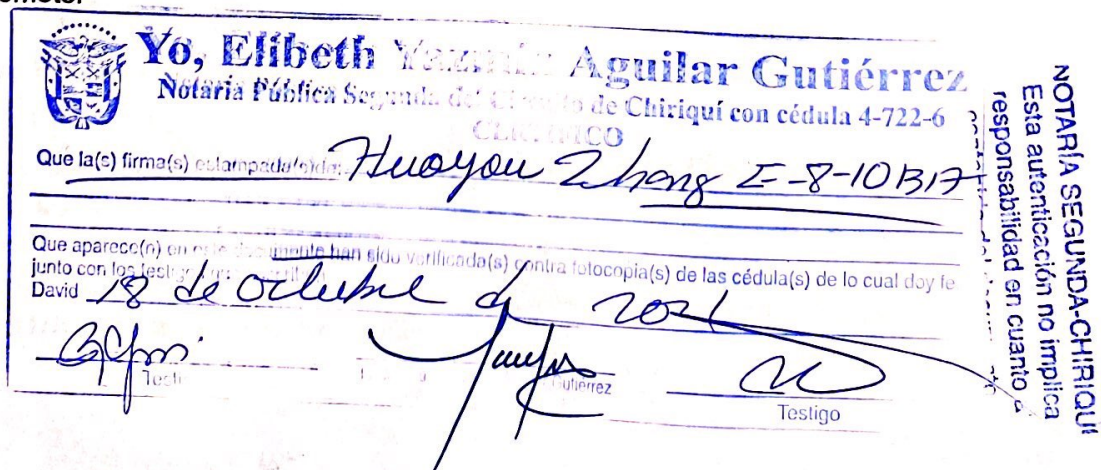 Yo, Elibeth Yazmín Aguilar Gutiérrez
Notaria Pública Segunda del Circuito de Chiriquí con cédula 4-722-6
Que la(s) firma(s) estampada(s) de: Huoyou Zhang E-8-101317
Que aparece(n) en este documento han sido verificada(s) contra fotocopia(s) de las cédula(s) de lo cual doy fe
junto con los testigos
David 18 de Octubre de 2021
Testigo
Gutiérrez
Testigo
NOTARÍA SEGUNDA-CHIRIQUÍ
Esta autenticación no implica
responsabilidad en cuanto a